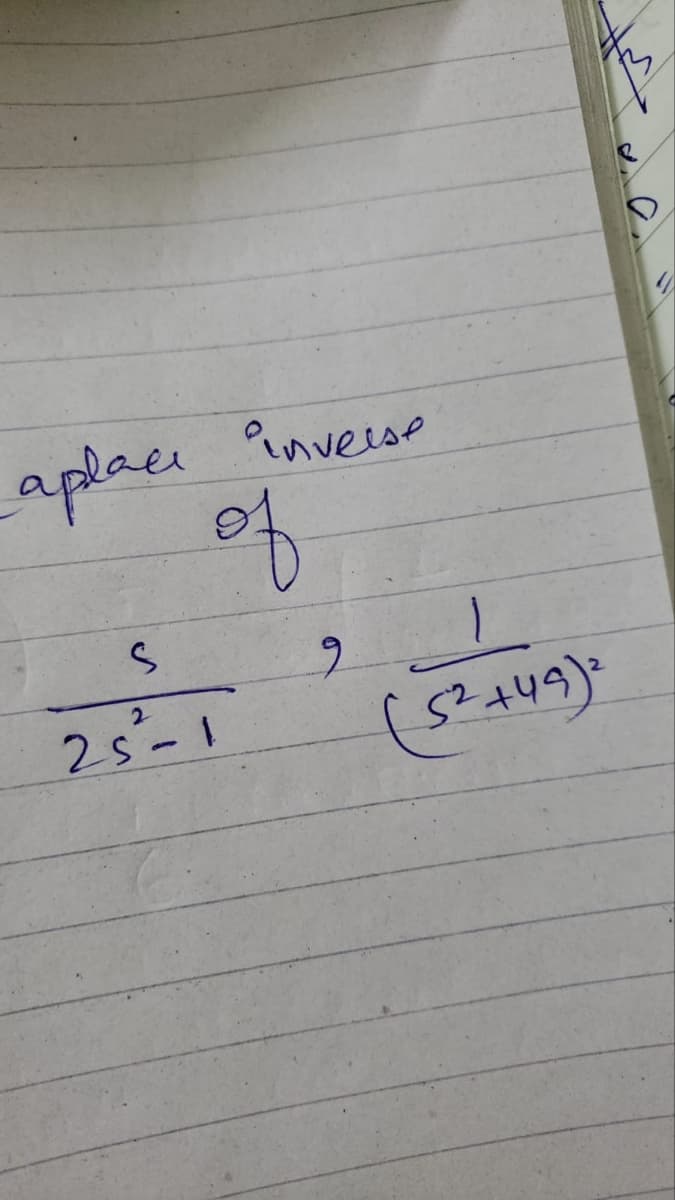 Laplace inverse
of
s/(2s²-1) , 1/(s²+49)²